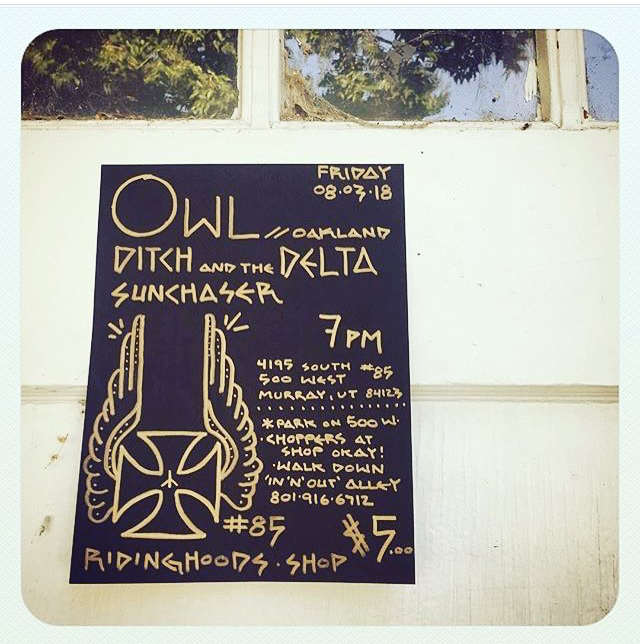 FRIDAY
08·03·18
OWL // OAKLAND
DITCH AND THE DELTA
SUNCHASER
7PM
4195 SOUTH #85
500 WEST
MURRAY, UT 84123
*PARK ON 500 W.
·CHOPPERS AT
SHOP OKAY!
·WALK DOWN
'IN'N'OUT' ALLEY
801·916·6712
#85
$5.00
RIDINGHOODS·SHOP